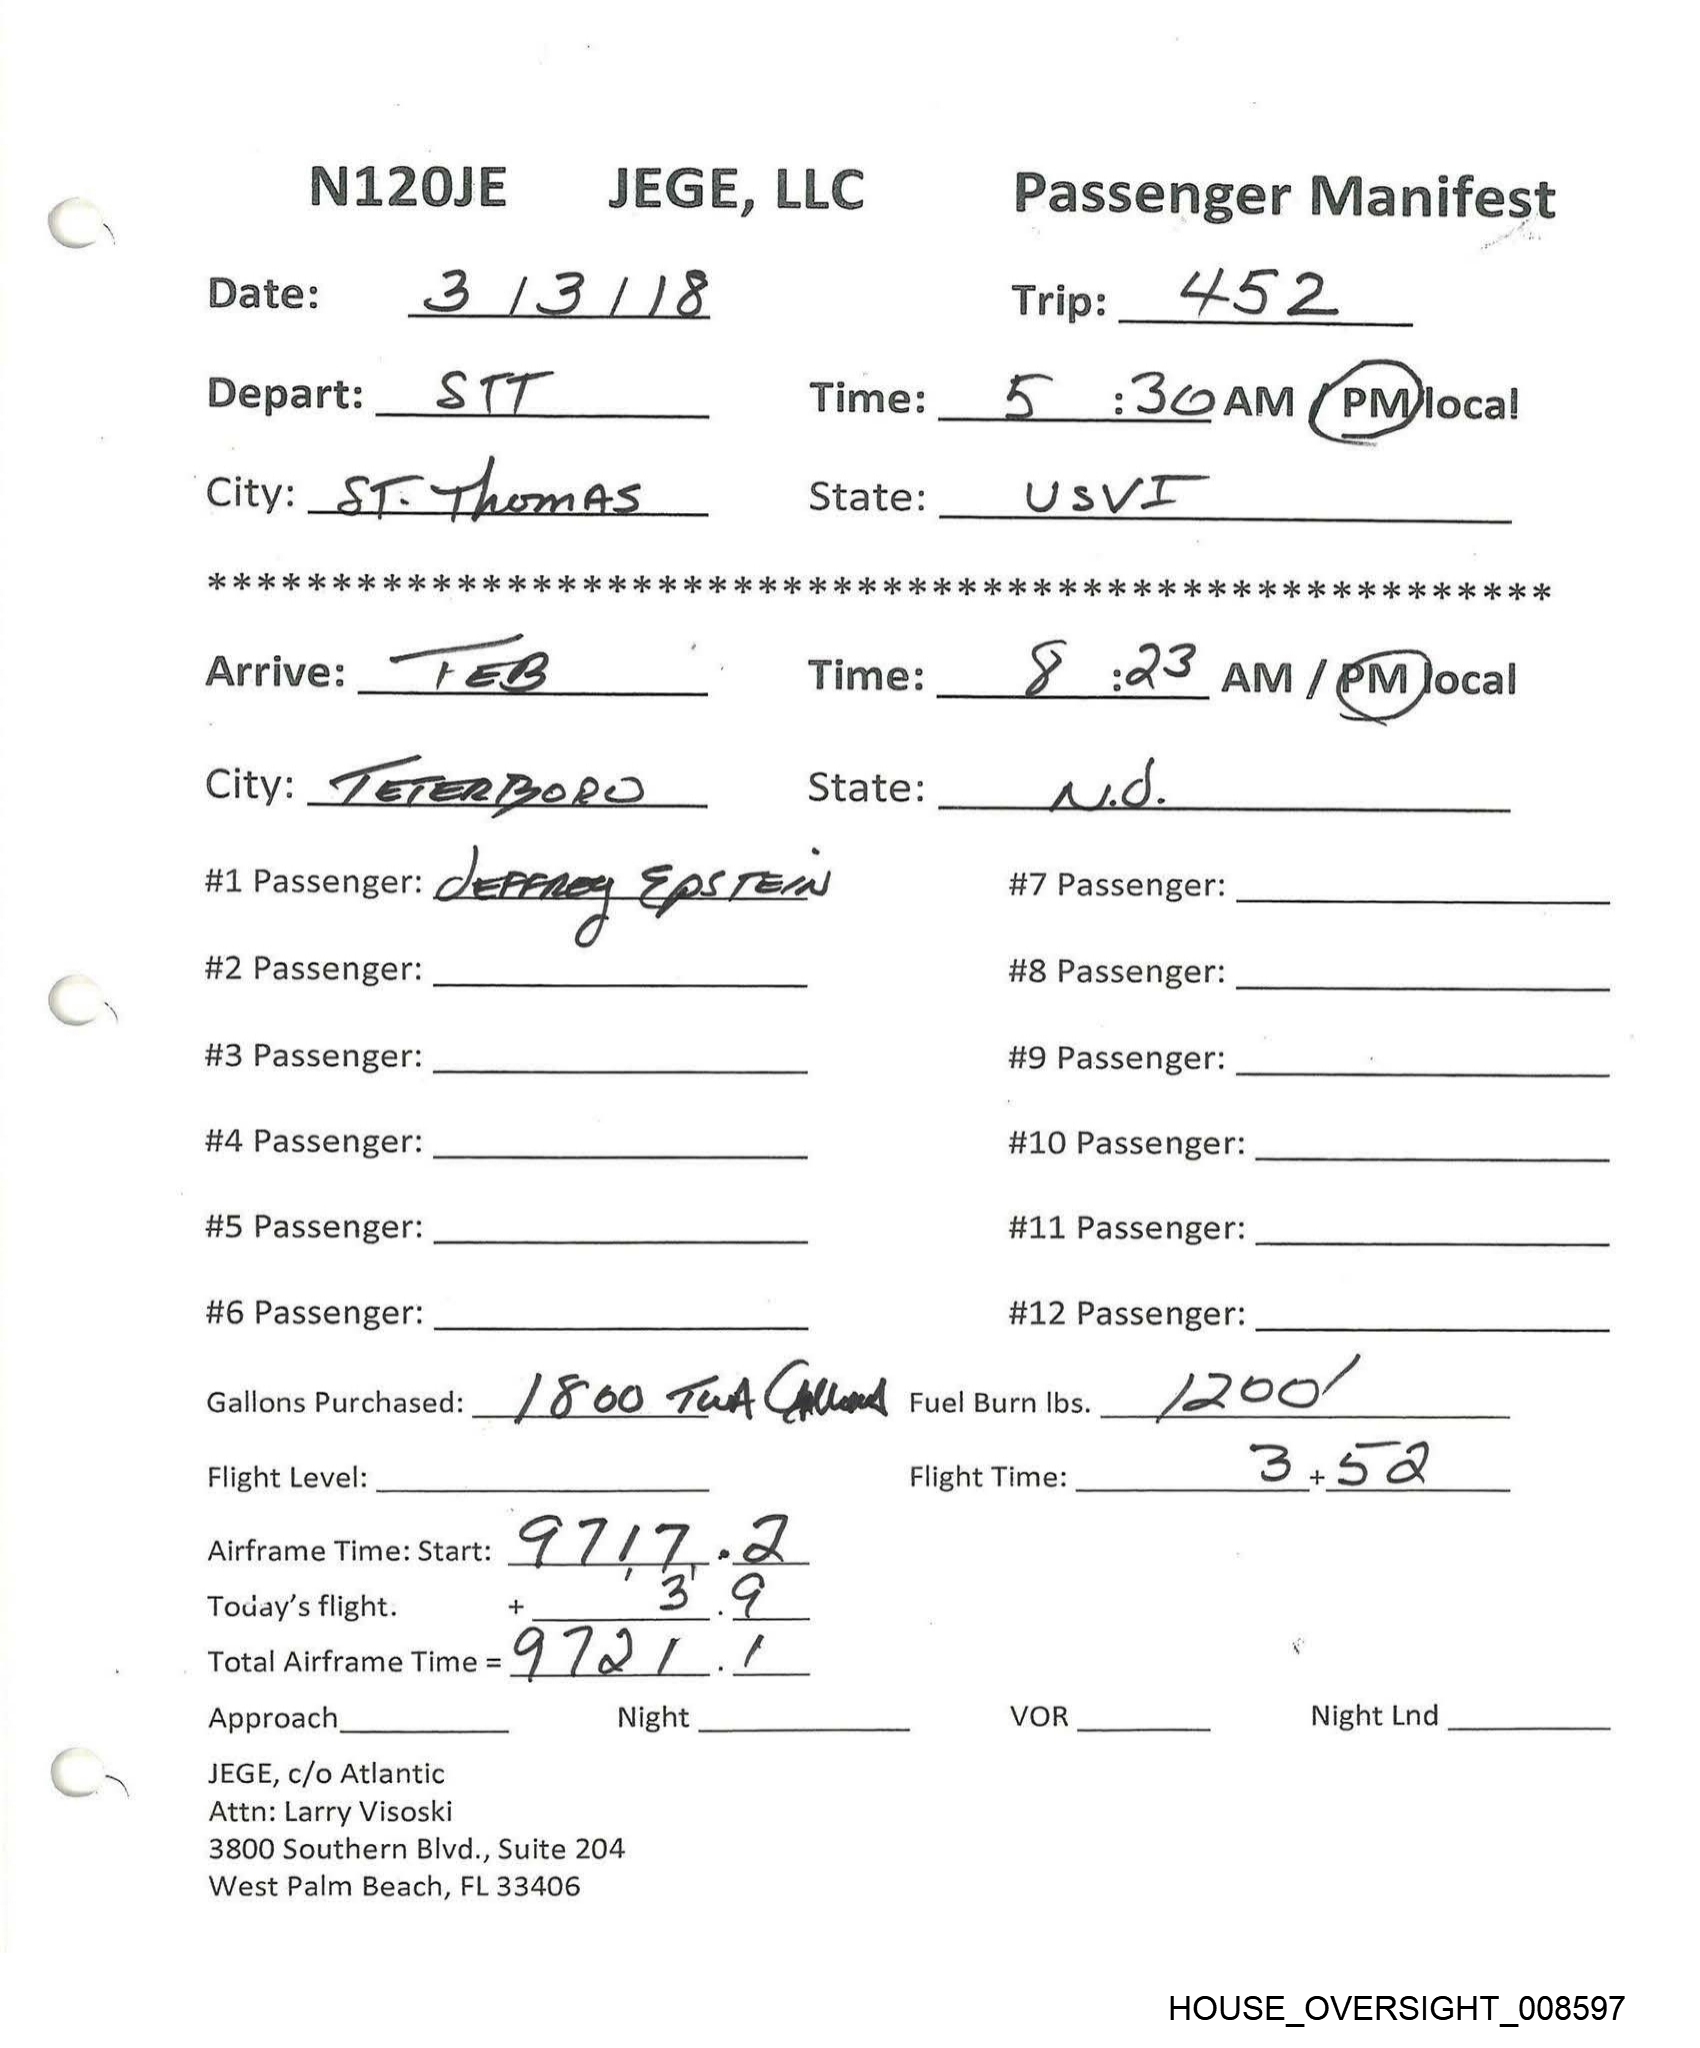 N120JE JEGE, LLC Passenger Manifest
Date: 3 / 3 / 18 Trip: 452
Depart: STT Time: 5 :30 AM / PM local
City: ST. Thomas State: USVI
******************************************************
Arrive: TEB Time: 8 :23 AM / PM local
City: TETERBORO State: N.J.
#1 Passenger: JEFFREY EPSTEIN #7 Passenger:
#2 Passenger: #8 Passenger:
#3 Passenger: #9 Passenger:
#4 Passenger: #10 Passenger:
#5 Passenger: #11 Passenger:
#6 Passenger: #12 Passenger:
Gallons Purchased: 1800 Gallons Fuel Burn lbs. 1200
Flight Level: Flight Time: 3 + 52
Airframe Time: Start: 9717 . 2
Today's flight. + 3 . 9
Total Airframe Time = 9721 . 1
Approach Night VOR Night Lnd
JEGE, c/o Atlantic
Attn: Larry Visoski
3800 Southern Blvd., Suite 204
West Palm Beach, FL 33406
HOUSE_OVERSIGHT_008597